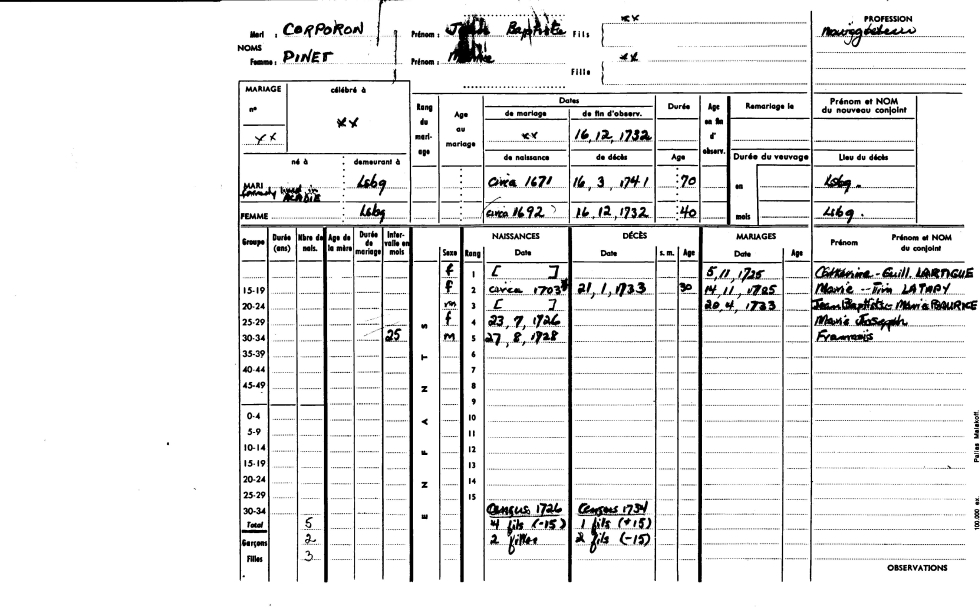 Mari : CORPORON Prénom : Jean Baptiste Fils xx
NOMS
Femme : PINET Prénom : Marie Fille xx
PROFESSION
MARIAGE célébré à
n°
xx xx
Rang du mariage
Age au mariage
Dates
de mariage de fin d'observ.
xx 16, 12, 1732
de naissance de décès
Durée
Age
Age en fin d'observ.
Remariage le
Durée du veuvage
en
mois
Prénom et NOM
du nouveau conjoint
Lieu du décès
né à demeurant à
MARI Lsbg circa 1671 16, 3, 1741 70 Lsbg.
lived in ACADIE
FEMME Lsbg circa 1692 16, 12, 1732 40 Lsbg.
Groupe Durée (ans) Nbre de nais. Age de la mère Durée de mariage Intervalle en mois
ENFANTS
Sexe Rang NAISSANCES Date DÉCÈS Date s. m. Age MARIAGES Date Age Prénom Prénom et NOM du conjoint
f 1 [ ] 5, 11, 1725 Catherine - Guill. LARTIGUE
15-19 f 2 circa 1703* 21, 1, 1733 30 14, 11, 1725 Marie -- Tim LATAPY
20-24 m 3 [ ] 20, 4, 1733 Jean Baptiste - Marie
25-29 f 4 23, 7, 1726 Marie Joseph
30-34 25 m 5 27, 8, 1728 Francois
35-39 6
40-44 7
45-49 8
9
0-4 10
5-9 11
10-14 12
15-19 13
20-24 14
25-29 15
30-34 Census 1726 Census 1734
Total 5 4 fils (-15) 1 fils (+15)
Garçons 2 2 filles 2 fils (-15)
Filles 3
OBSERVATIONS
100.000 ex.